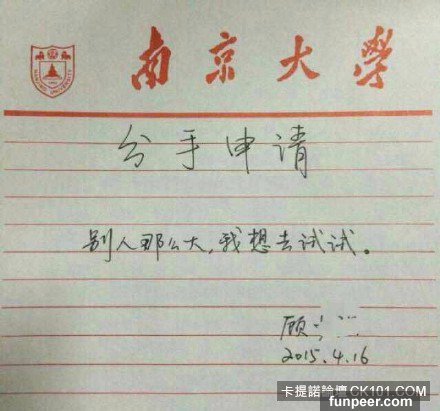 南京大學
NANJING UNIVERSITY
分手申请
别人那么大,我想去试试。
顾
2015.4.16
卡提諾論壇 CK101.COM
funpeer.com